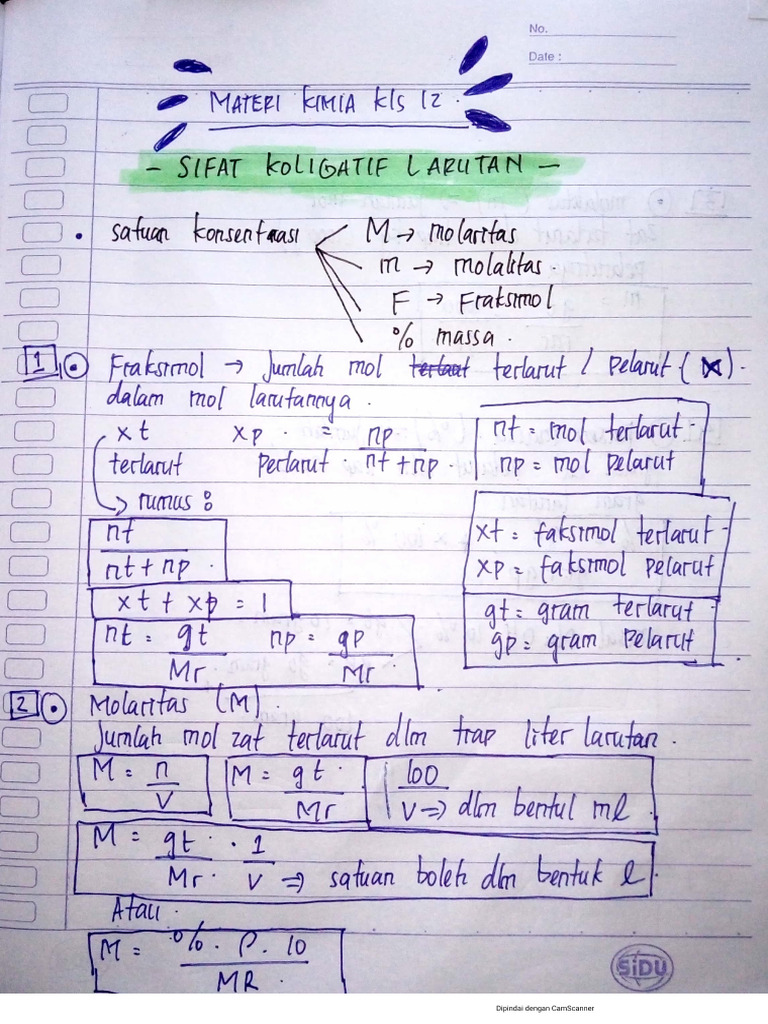 No.
Date :
MATERI KIMIA Kls 12.
- SIFAT KOLIGATIF LARUTAN -
• satuan konsentrasi
M → molaritas
m → molalitas.
F → Fraksimol
% massa.
1 Fraksimol → Jumlah mol terlarut / Pelarut (X).
dalam mol larutannya.
xt xp. = np / nt + np
terlarut perlarut.
nt = mol terlarut.
np = mol pelarut
→ rumus :
nt / nt + np.
xt = faksimol terlarut
xp = faksimol pelarut
xt + xp = 1
nt = gt / Mr np = gp / Mr.
gt = gram terlarut
gp = gram pelarut
2 Molaritas (M).
Jumlah mol zat terlarut dlm tiap liter larutan.
M = n / V
M = gt. / Mr
100 / V => dlm bentul ml
M = gt. / Mr. . 1 / V => satuan boleh dlm bentuk l.
Atau.
M = %. ρ. 10 / MR
SiDU
Dipindai dengan CamScanner